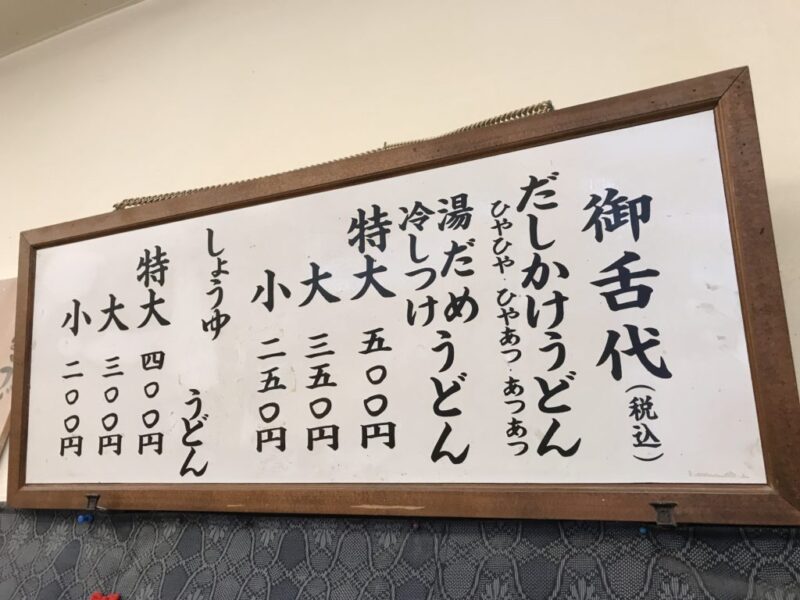 御舌代(税込)
だしかけうどん
ひやひや・ひやあつ・あつあつ
湯だめうどん
冷しつけ
特大 五〇〇円
大 三五〇円
小 二五〇円
しょうゆ うどん
特大 四〇〇円
大 三〇〇円
小 二〇〇円